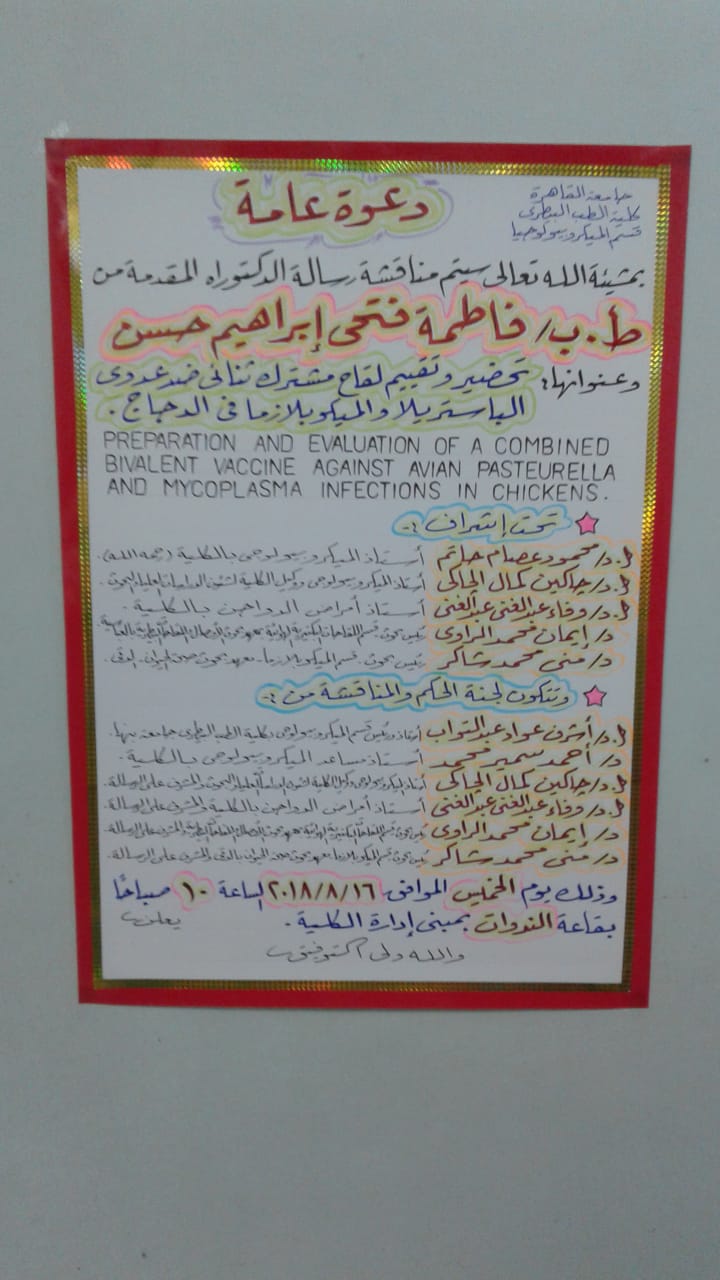 جامعة القاهرة
كلية الطب البيطرى
قسم الميكروبيولوجيا
دعوة عامة
بمشيئة الله تعالى سيتم مناقشة رسالة الدكتوراه المقدمة من
ط.ب/ فاطمة فتحى إبراهيم حسن
وعنوانها: تحضير وتقييم لقاح مشترك ثنائى ضد عدوى
الباستريلا والميكوبلازما فى الدجاج.
PREPARATION AND EVALUATION OF A COMBINED
BIVALENT VACCINE AGAINST AVIAN PASTEURELLA
AND MYCOPLASMA INFECTIONS IN CHICKENS.
تحت إشراف :-
أ.د/ محمود عصام حاتم أستاذ الميكروبيولوجى بالكلية (رحمه الله).
أ.د/ جاكين كمال الحاكى أستاذ الميكروبيولوجى ووكيل الكلية لشئون الدراسات العليا والبحوث.
أ.د/ وفاء عبد الغنى عبد الغنى أستاذ أمراض الدواجن بالكلية.
د/ إيمان محمد الراوى رئيس بحوث قسم اللقاحات البكتيرية الهوائية بمعهد بحوث الأمصال واللقاحات البيطرية بالعباسية
د/ منى محمد شاكر رئيس بحوث قسم الميكوبلازما - معهد بحوث صحة الحيوان - الدقى.
وتتكون لجنة الحكم والمناقشة من :-
أ.د/ أشرف عواد عبد التواب أستاذ ورئيس قسم الميكروبيولوجى بكلية الطب البيطرى جامعة بنها.
د/ أحمد سمير محمد أستاذ مساعد الميكروبيولوجى بالكلية.
أ.د/ جاكين كمال الحاكى أستاذ الميكروبيولوجى ووكيل الكلية لشئون الدراسات العليا والبحوث والمشرف على الرسالة.
أ.د/ وفاء عبد الغنى عبد الغنى أستاذ أمراض الدواجن بالكلية والمشرف على الرسالة.
د/ إيمان محمد الراوى رئيس بحوث قسم اللقاحات البكتيرية الهوائية بمعهد بحوث الأمصال واللقاحات البيطرية والمشرف على الرسالة.
د/ منى محمد شاكر رئيس بحوث قسم الميكوبلازما بمعهد بحوث صحة الحيوان بالدقى والمشرف على الرسالة.
وذلك يوم الخميس الموافق ٢٠١٨/٨/١٦ الساعة ١٠ صباحًا
بقاعة الندوات بمبنى إدارة الكلية.
والله ولى التوفيق